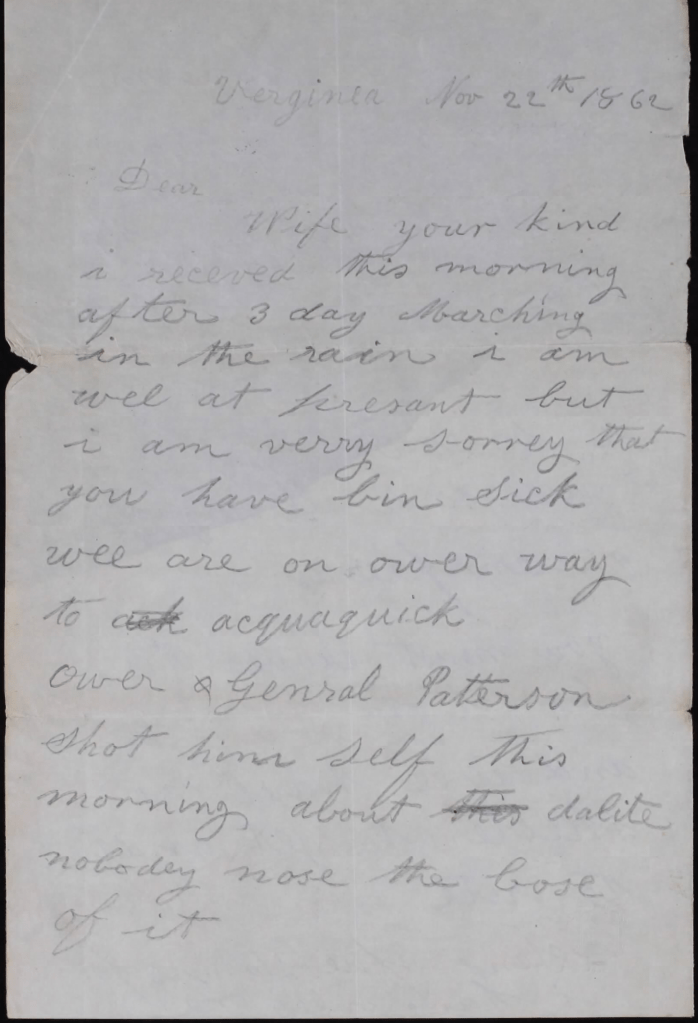 Verginea Nov 22th 1862
Dear
Wife your kind
i receved this morning
after 3 day Marching
in the rain i am
wel at presant but
i am verry sorrey that
you have bin sick
wee are on ower way
to ack acquaquick
ower & Genral Paterson
shot him self this
morning about this dalite
nobodey nose the cose
of it